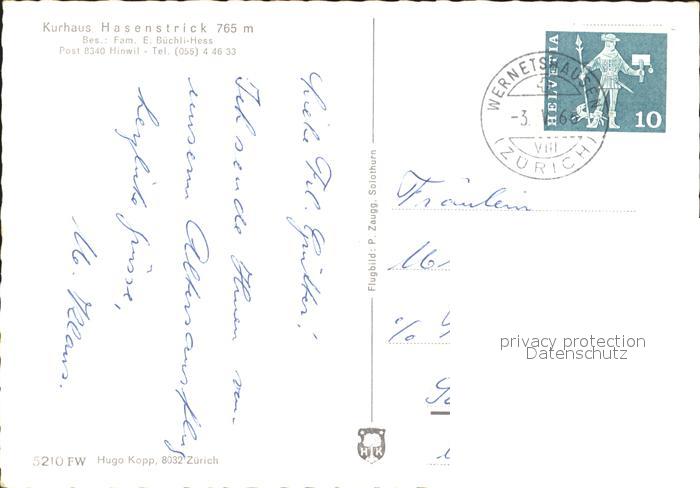 Kurhaus Hasenstrick 765 m
Bes.: Fam. E. Büchli-Hess
Post 8340 Hinwil - Tel. (055) 4 46 33
Liebe Frl. Günther!
Ich sende Ihnen von
unserem Altersausflug
herzliche Grüsse,
M. Klaus.
5210 FW Hugo Kopp, 8032 Zürich
Flugbild: P. Zaugg, Solothurn
H K
HELVETIA
10
WERNETSHAUSEN
-3. 66
VIII
(ZÜRICH)
Fräulein
M
c/o
privacy protection
Datenschutz